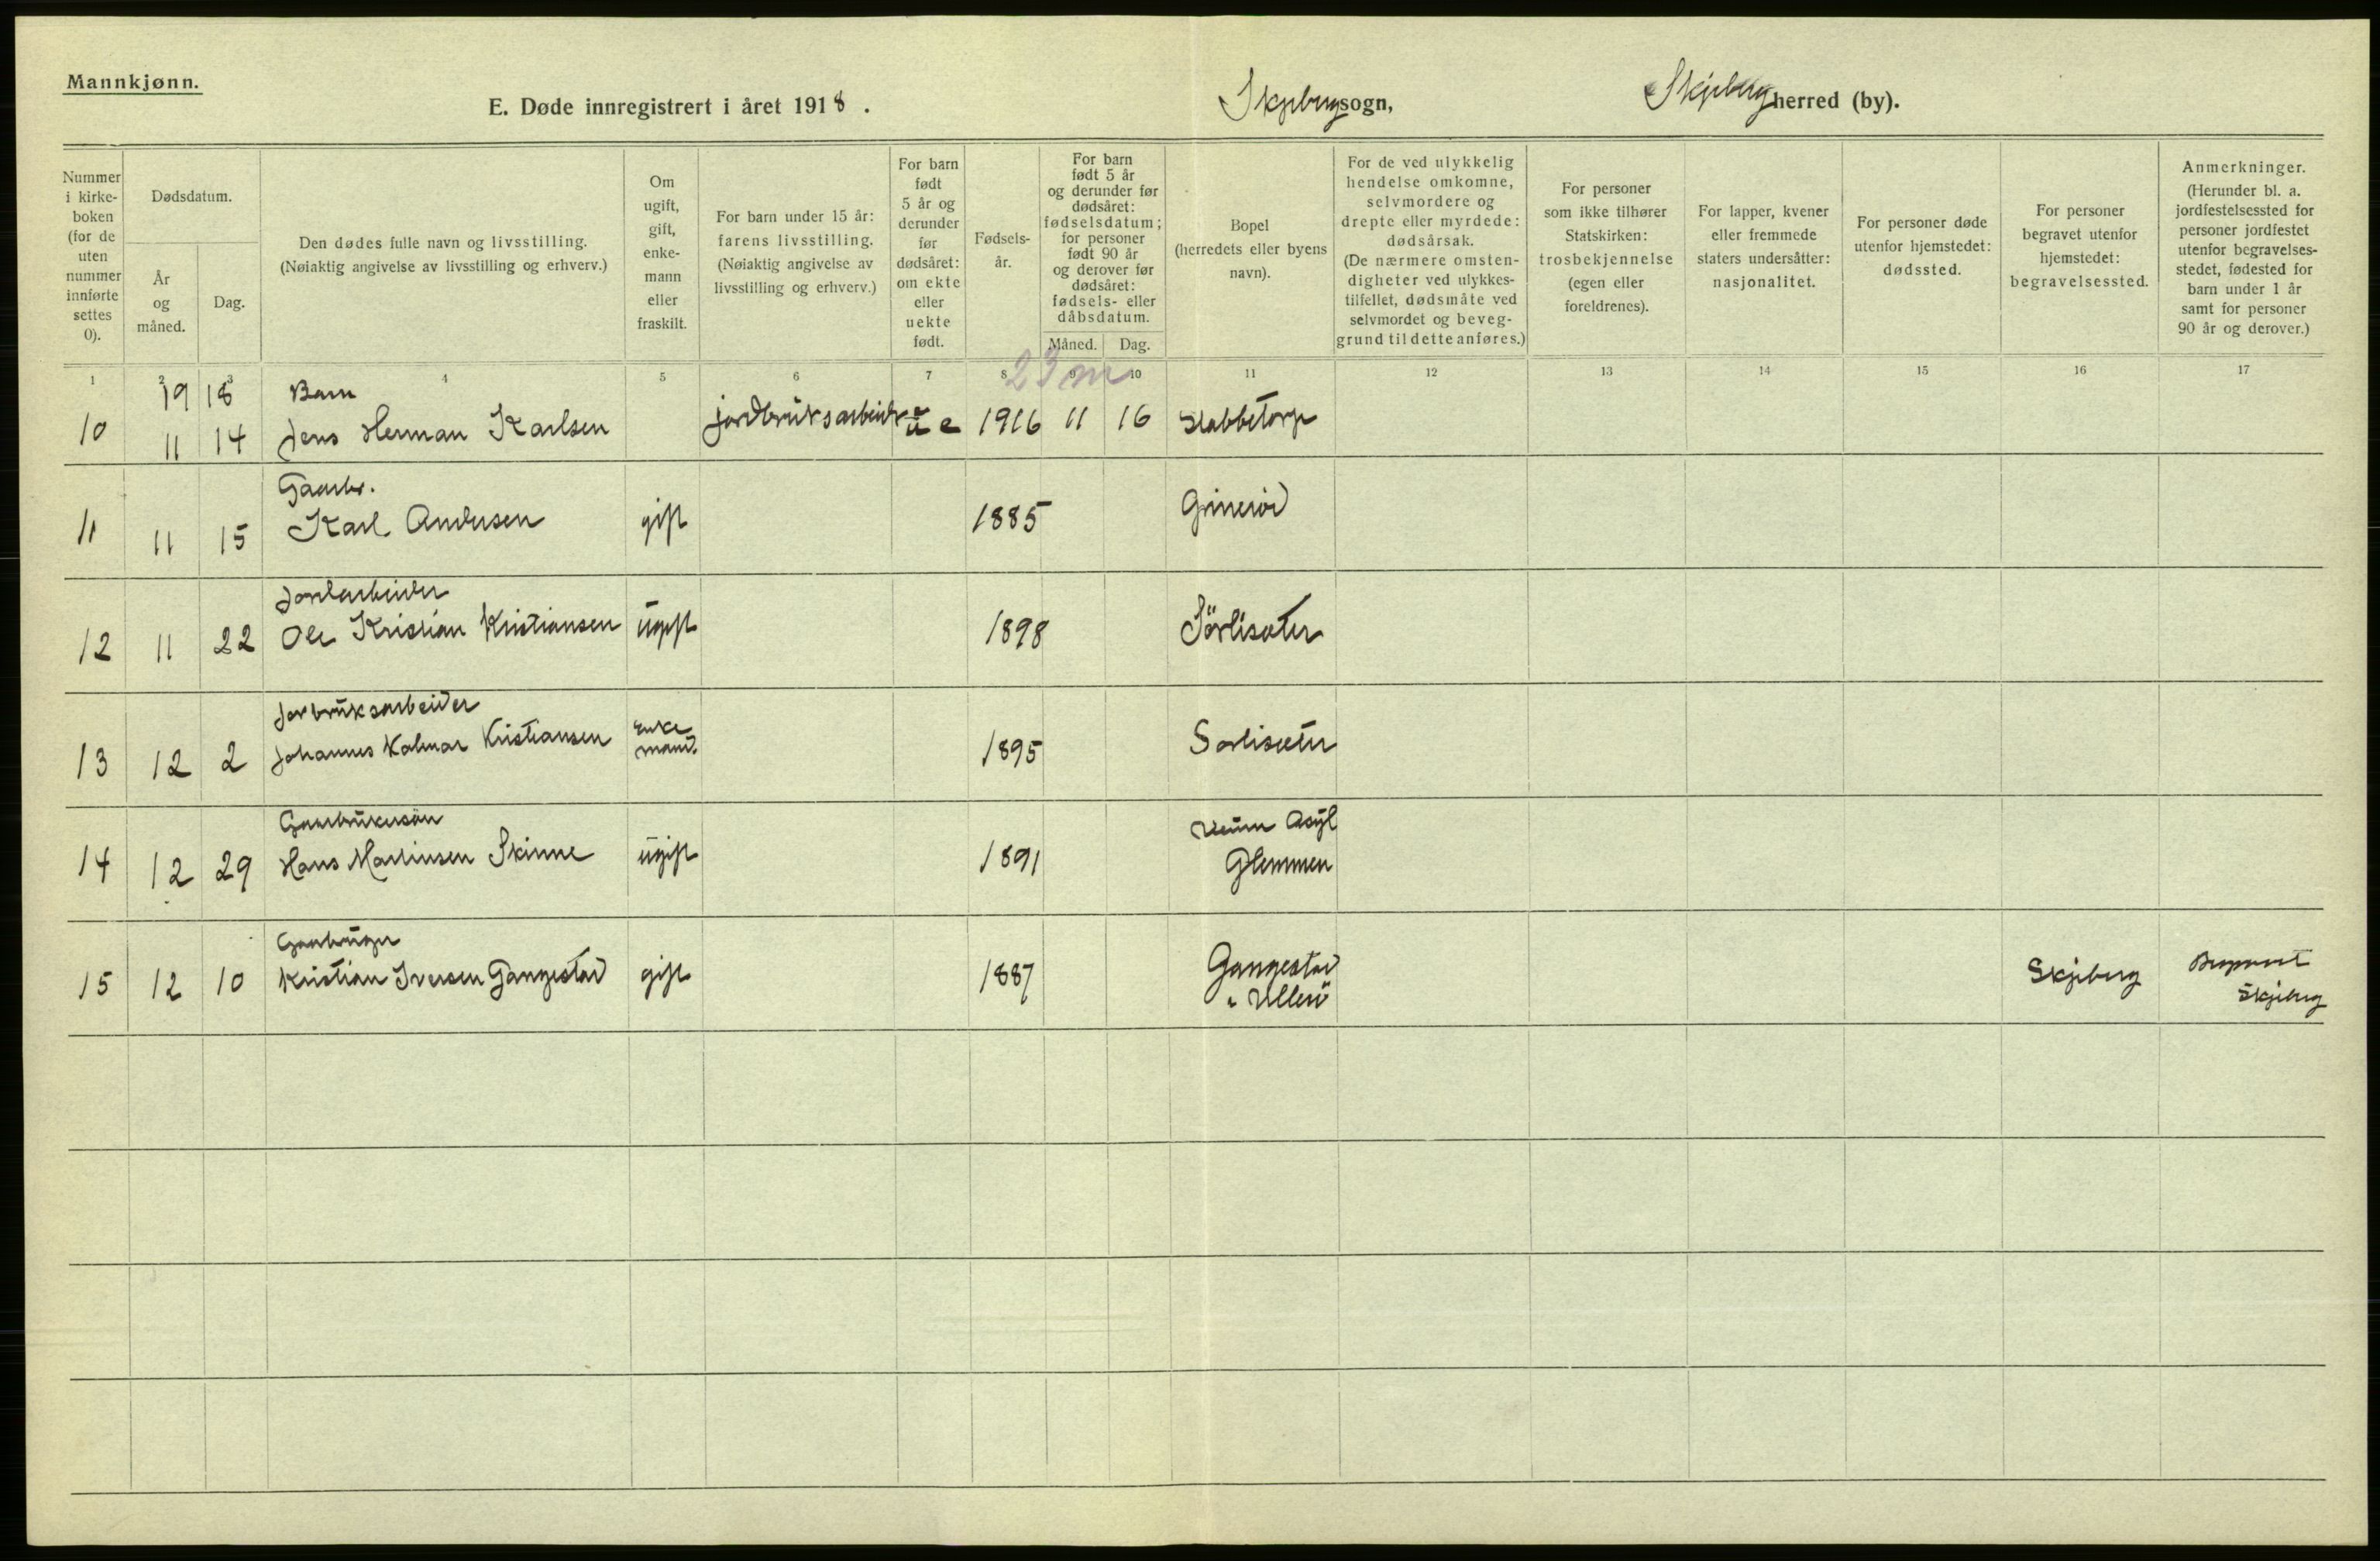 Mannkjønn.
E. Døde innregistrert i året 1918.
Skjeberg sogn,
Skjeberg herred (by).
Nummer i kirke-boken (for de uten nummer innførte settes 0).
Dødsdatum.
År og måned.
Dag.
Den dødes fulle navn og livsstilling.
(Nøiaktig angivelse av livsstilling og erhverv.)
Om ugift, gift, enke-mann eller fraskilt.
For barn under 15 år: farens livsstilling. (Nøiaktig angivelse av livsstilling og erhverv.)
For barn født 5 år og derunder før dødsåret: om ekte eller uekte født.
Fødsels-år.
For barn født 5 år og derunder før dødsåret: fødselsdatum; for personer født 90 år og derover før dødsåret: fødsels- eller dåbsdatum.
Måned. Dag.
Bopel (herredets eller byens navn).
For de ved ulykkelig hendelse omkomne, selvmordere og drepte eller myrdede: dødsårsak. (De nærmere omsten-digheter ved ulykkes-tilfellet, dødsmåte ved selvmordet og beveg-grund til dette anføres.)
For personer som ikke tilhører Statskirken: trosbekjennelse (egen eller foreldrenes).
For lapper, kvener eller fremmede staters undersåtter: nasjonalitet.
For personer døde utenfor hjemstedet: dødssted.
For personer begravet utenfor hjemstedet: begravelsessted.
Anmerkninger. (Herunder bl. a. jordfestelsessted for personer jordfestet utenfor begravelses-stedet, fødested for barn under 1 år samt for personer 90 år og derover.)
1 2 3 4 5 6 7 8 9 10 11 12 13 14 15 16 17
23 m
1918 Barn
10 11 14 Jens Herman Karlsen jordbruksarbeider e 1916 11 16 Stabbetorp
Gaarbr.
11 11 15 Karl Andersen gift 1885 Grimsrød
Jordarbeider
12 11 22 Ole Kristian Kristiansen ugift 1898 Sörlisæter
Jorbruksarbeider
13 12 2 Johannes Valmar Kristiansen Enkemand. 1895 Sorlisæter
Gaarbrukersön
14 12 29 Hans Martinsen Skinne ugift 1891 Veum Asyl Glemmen
Gaarbruger
15 12 10 Kristian Iversen Gangestad gift 1887 Gangestad i Ullerö Skjeberg Begravet Skjeberg